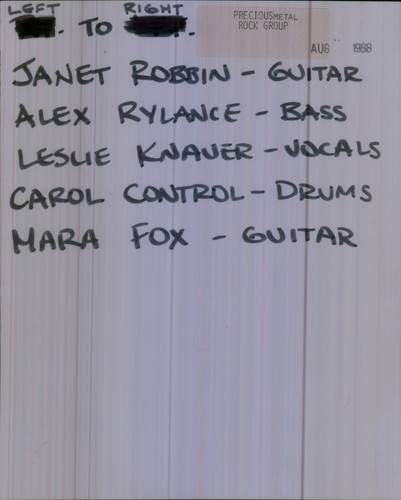 LEFT TO RIGHT.
PRECIOUSMETAL
ROCK GROUP
AUG 1988
JANET ROBBIN - GUITAR
ALEX RYLANCE - BASS
LESLIE KNAUER - VOCALS
CAROL CONTROL - DRUMS
MARA FOX - GUITAR